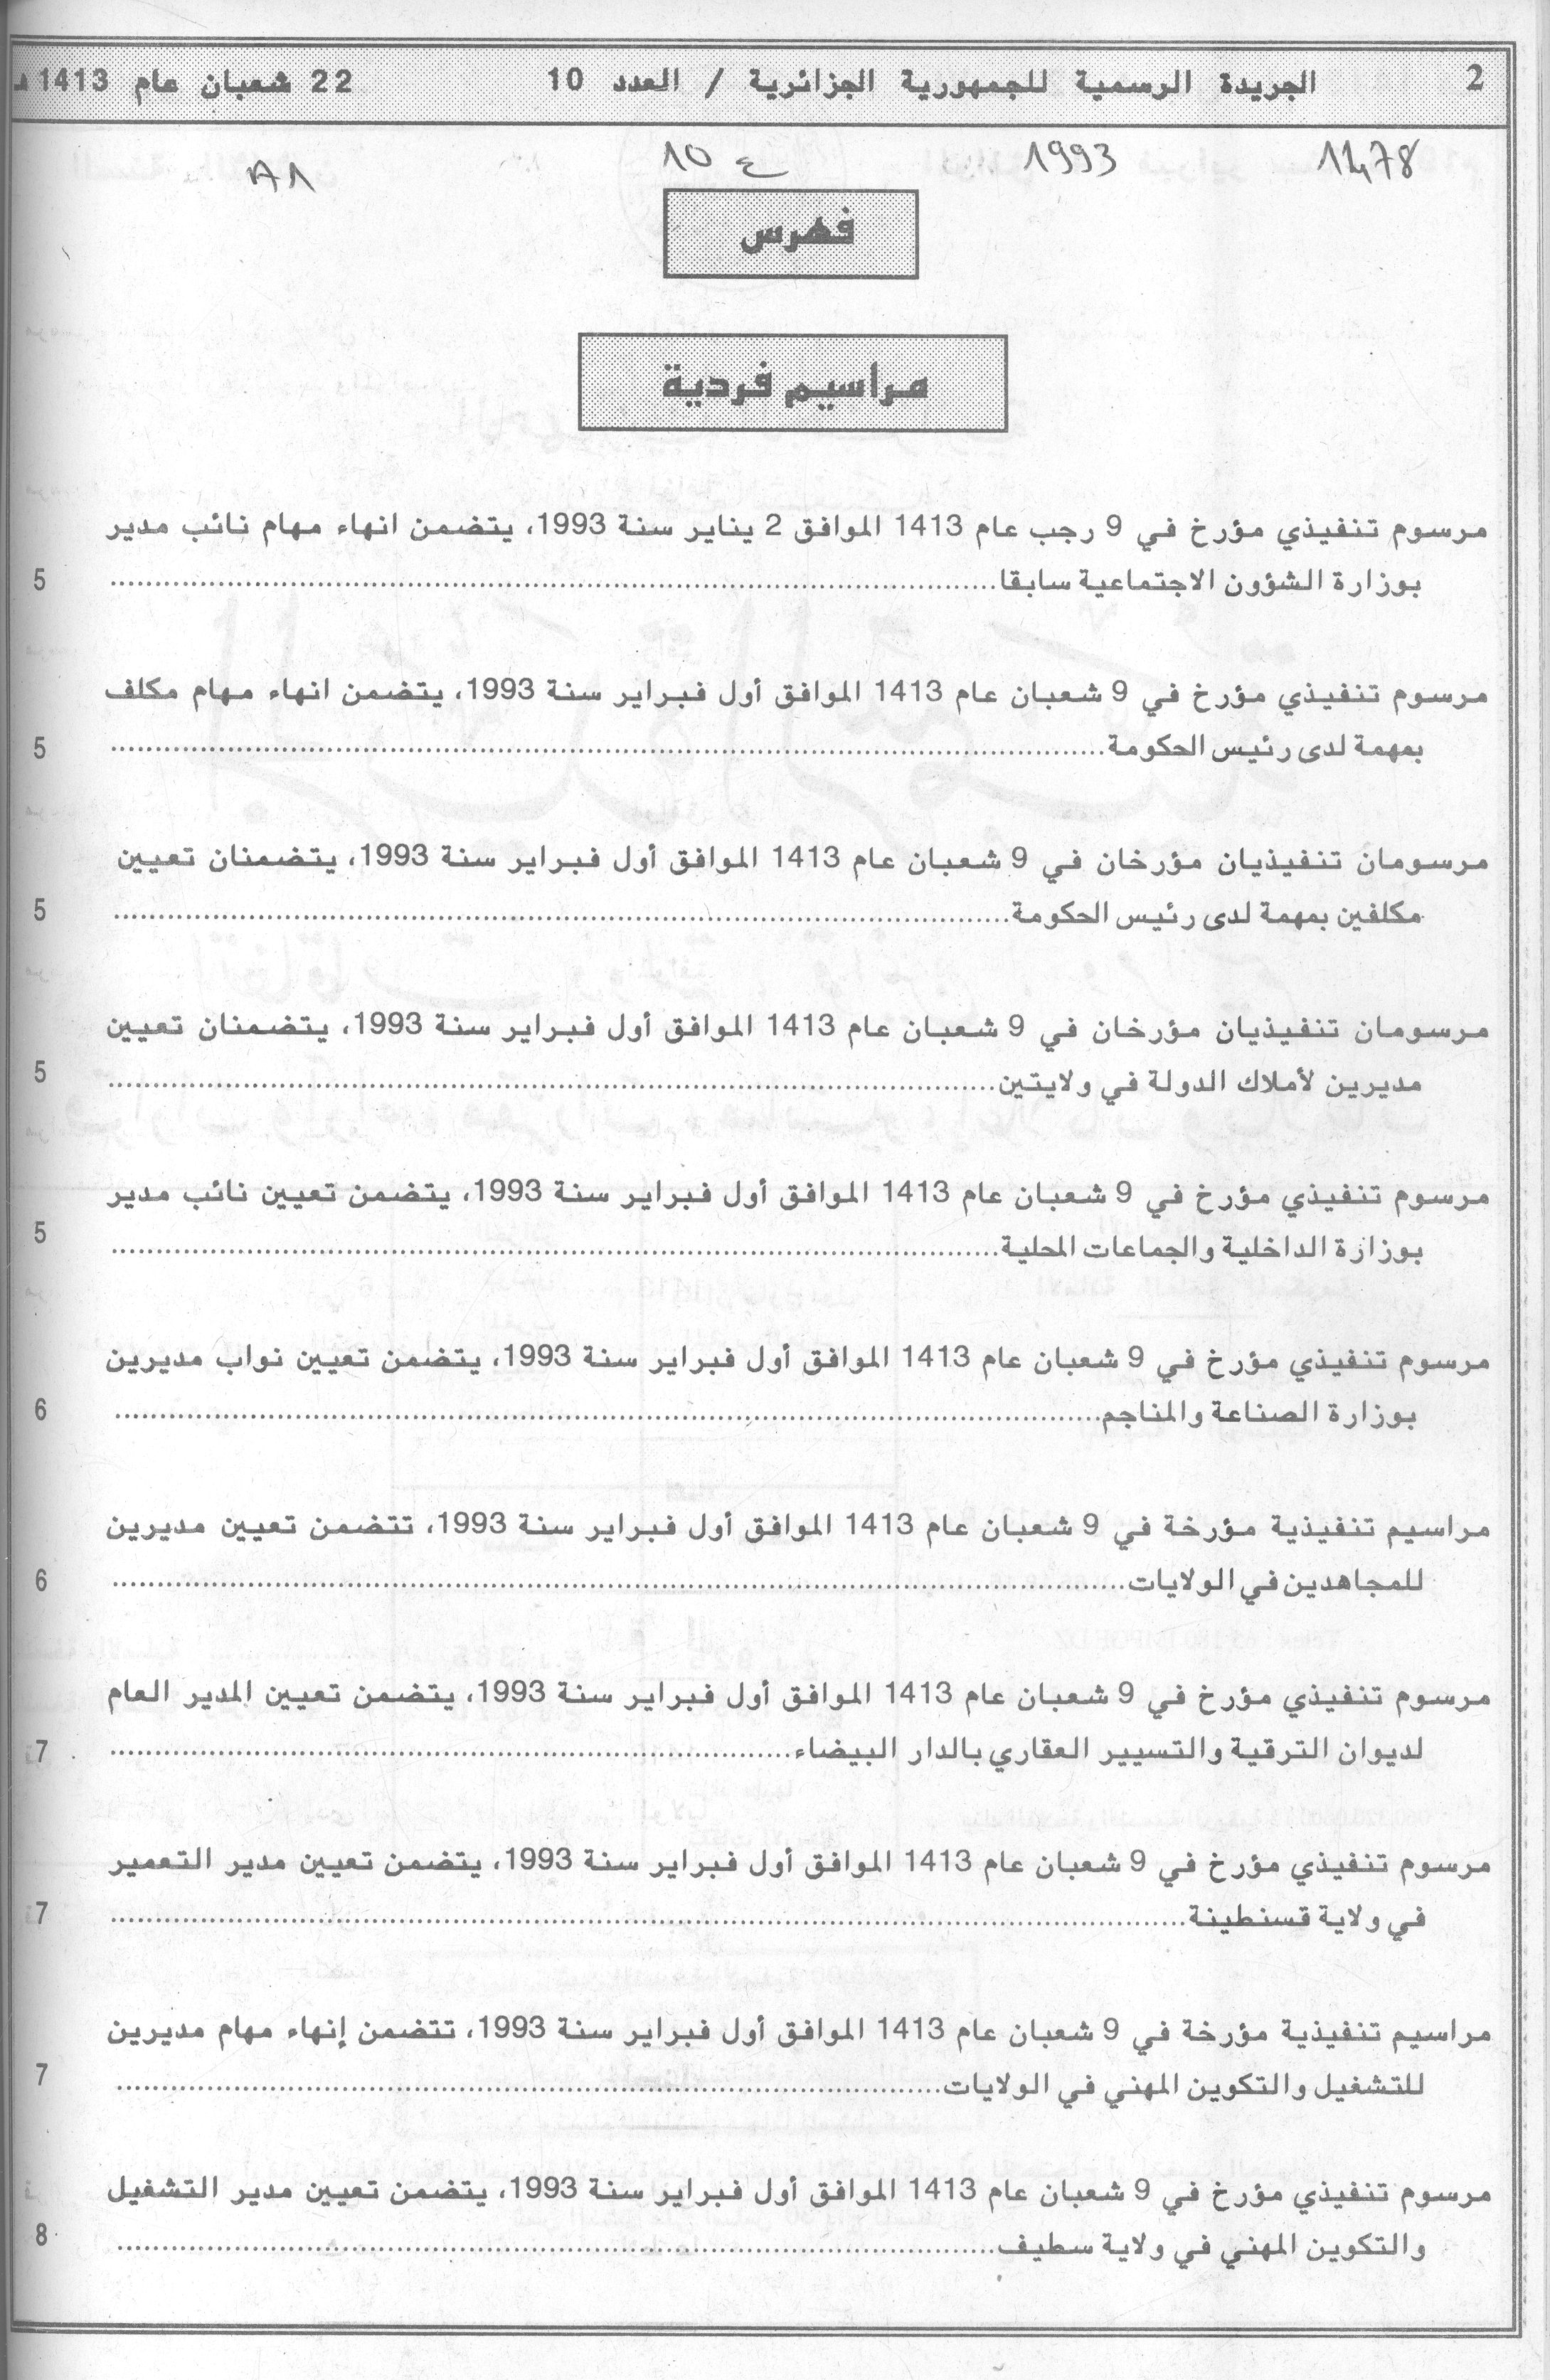 2 الجريدة الرسمية للجمهورية الجزائرية / العدد 10 22 شعبان عام 1413 هـ
1478 1993 ع 10 A1
فهرس
مراسيم فردية
مرسوم تنفيذي مؤرخ في 9 رجب عام 1413 الموافق 2 يناير سنة 1993، يتضمن انهاء مهام نائب مدير
بوزارة الشؤون الاجتماعية سابقا 5
مرسوم تنفيذي مؤرخ في 9 شعبان عام 1413 الموافق أول فبراير سنة 1993، يتضمن انهاء مهام مكلف
بمهمة لدى رئيس الحكومة 5
مرسومان تنفيذيان مؤرخان في 9 شعبان عام 1413 الموافق أول فبراير سنة 1993، يتضمنان تعيين
مكلفين بمهمة لدى رئيس الحكومة 5
مرسومان تنفيذيان مؤرخان في 9 شعبان عام 1413 الموافق أول فبراير سنة 1993، يتضمنان تعيين
مديرين لأملاك الدولة في ولايتين 5
مرسوم تنفيذي مؤرخ في 9 شعبان عام 1413 الموافق أول فبراير سنة 1993، يتضمن تعيين نائب مدير
بوزارة الداخلية والجماعات المحلية 5
مرسوم تنفيذي مؤرخ في 9 شعبان عام 1413 الموافق أول فبراير سنة 1993، يتضمن تعيين نواب مديرين
بوزارة الصناعة والمناجم 6
مراسيم تنفيذية مؤرخة في 9 شعبان عام 1413 الموافق أول فبراير سنة 1993، تتضمن تعيين مديرين
للمجاهدين في الولايات 6
مرسوم تنفيذي مؤرخ في 9 شعبان عام 1413 الموافق أول فبراير سنة 1993، يتضمن تعيين المدير العام
لديوان الترقية والتسيير العقاري بالدار البيضاء 7
مرسوم تنفيذي مؤرخ في 9 شعبان عام 1413 الموافق أول فبراير سنة 1993، يتضمن تعيين مدير التعمير
في ولاية قسنطينة 7
مراسيم تنفيذية مؤرخة في 9 شعبان عام 1413 الموافق أول فبراير سنة 1993، تتضمن إنهاء مهام مديرين
للتشغيل والتكوين المهني في الولايات 7
مرسوم تنفيذي مؤرخ في 9 شعبان عام 1413 الموافق أول فبراير سنة 1993، يتضمن تعيين مدير التشغيل
والتكوين المهني في ولاية سطيف 8